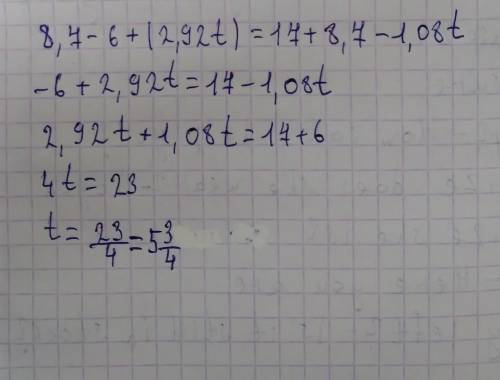 8,7-6+(2,92t)=17+8,7-1,08t
-6+2,92t=17-1,08t
2,92t+1,08t=17+6
4t=23
t=23/4=5 3/4